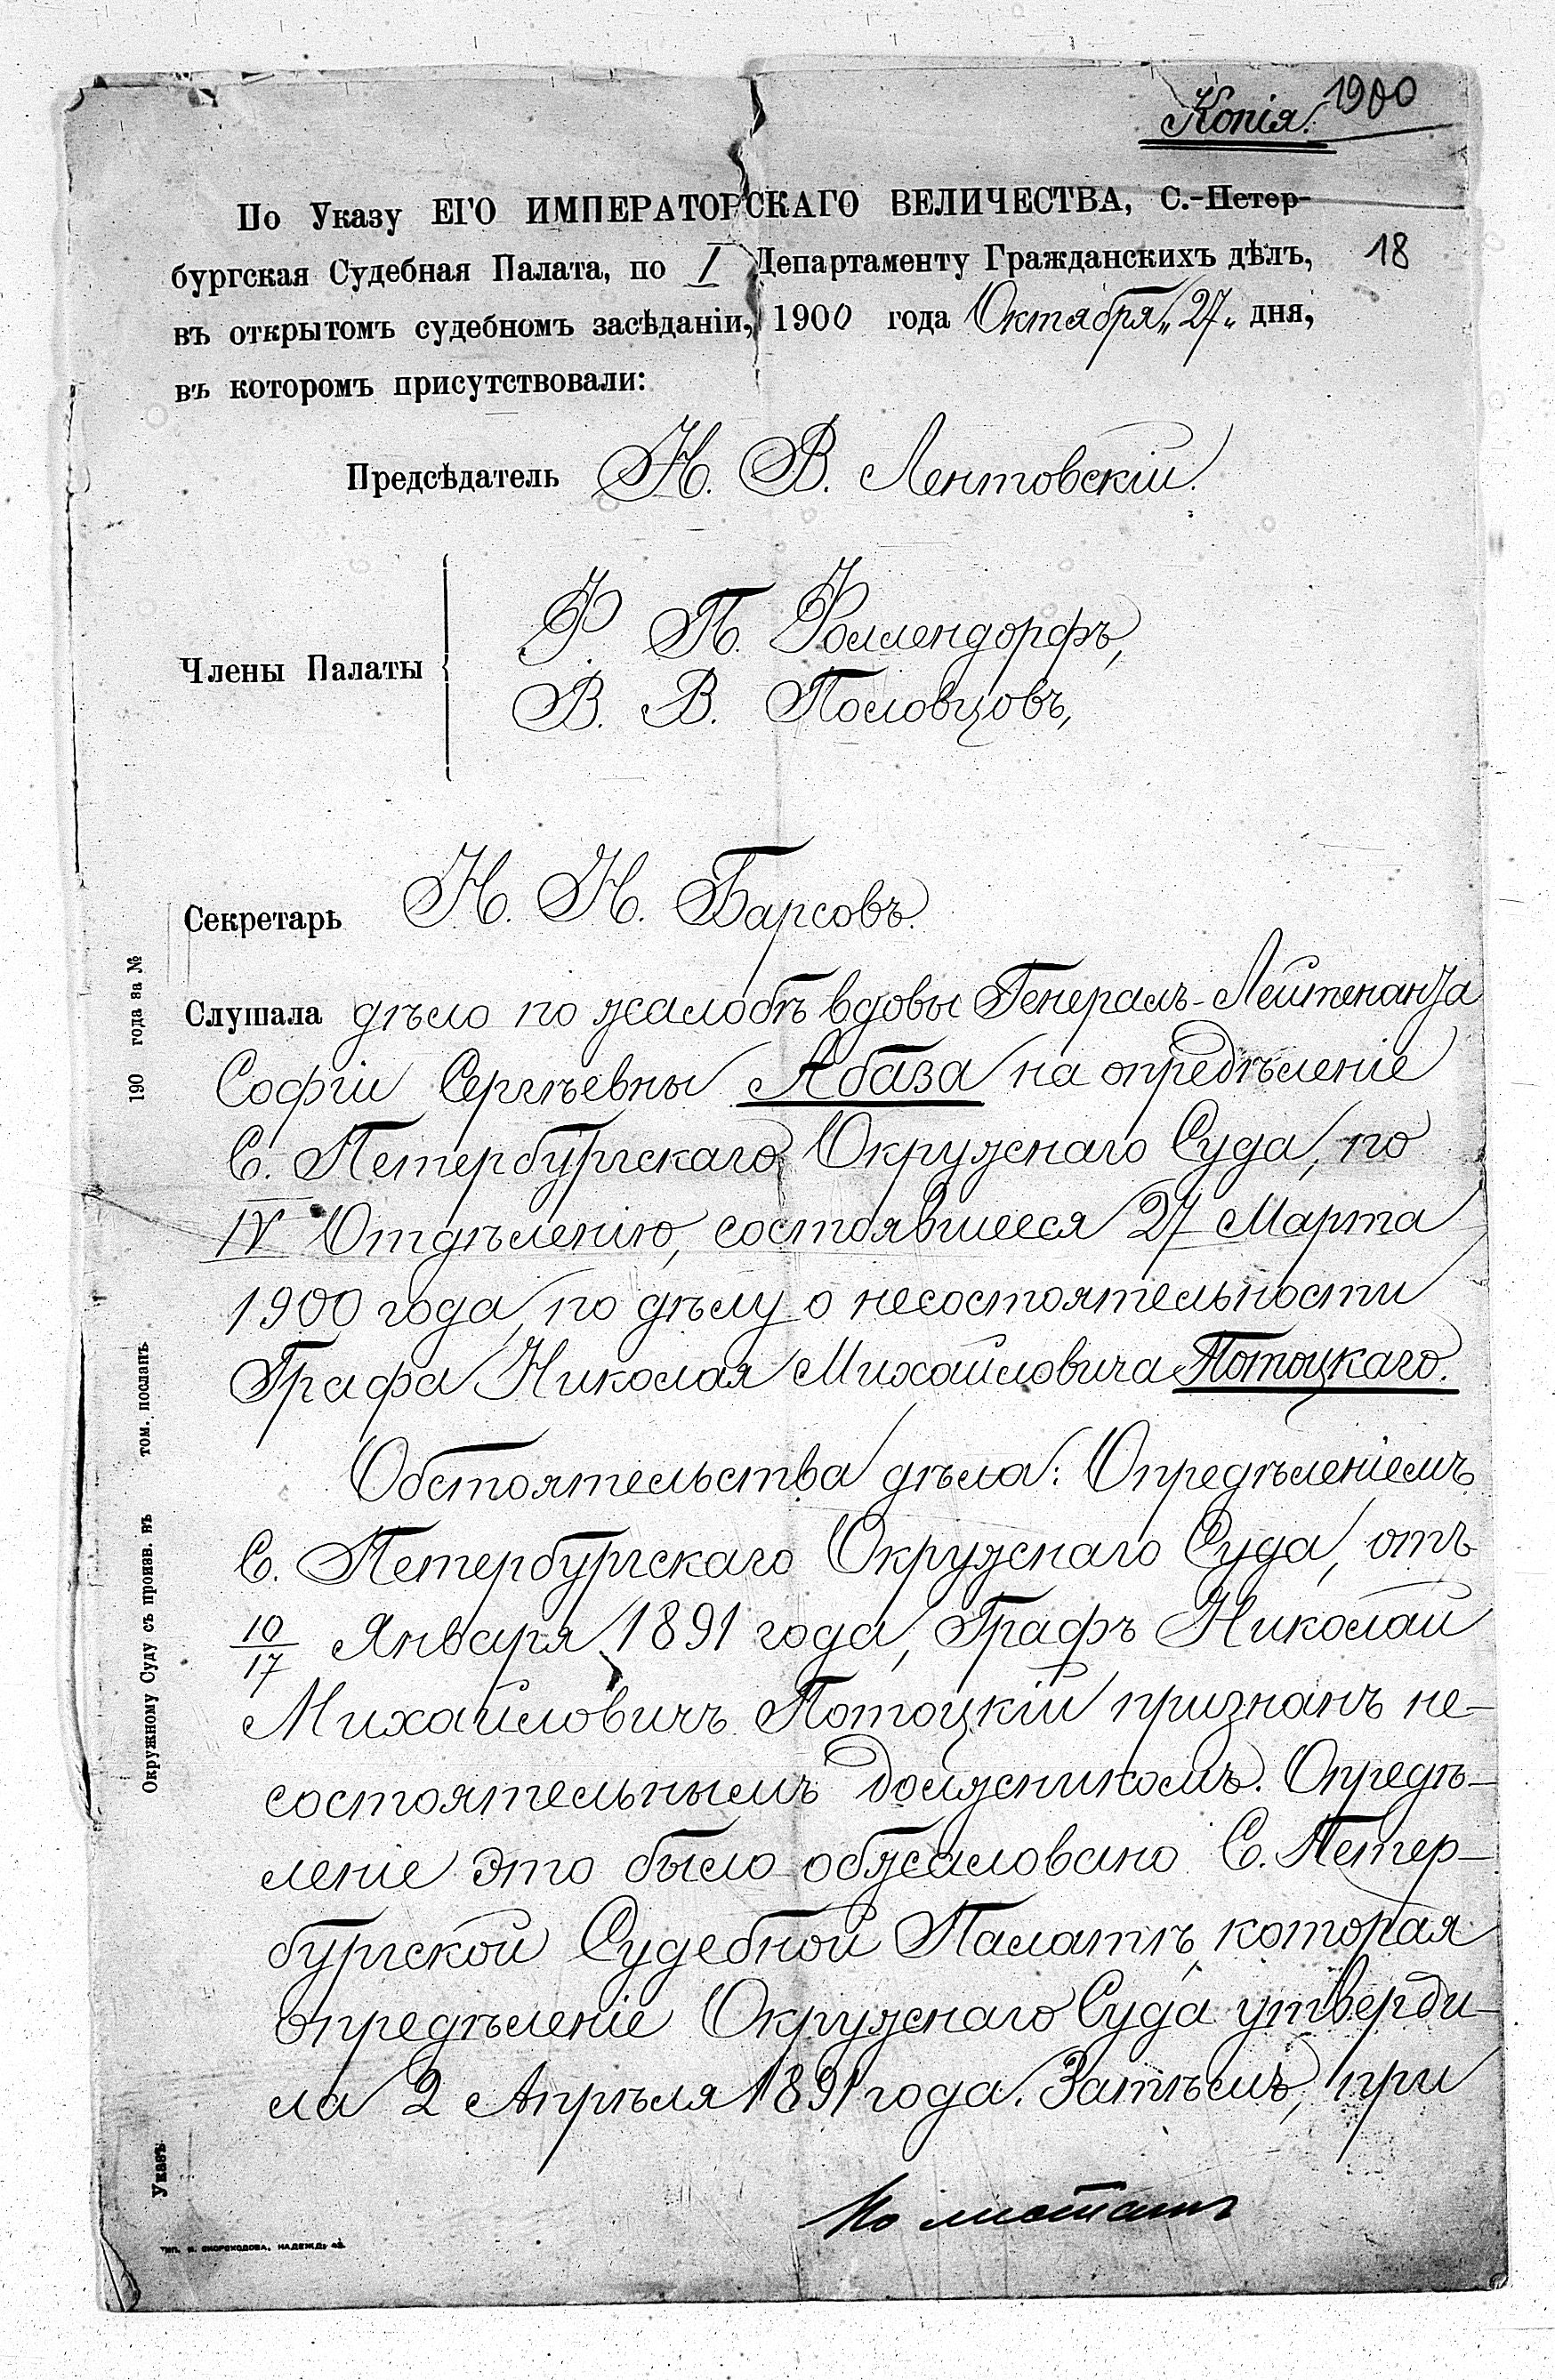 Копія. 1900
По Указу ЕГО ИМПЕРАТОРСКАГО ВЕЛИЧЕСТВА, С.-Петер-
бургская Судебная Палата, по I Департаменту Гражданскихъ дѣлъ,
18
въ открытомъ судебномъ засѣданіи, 1900 года Октября „27„ дня,
въ которомъ присутствовали:
Предсѣдатель Н. В. Лентовскій.
Члены Палаты
Ф. П. Фоллендорфъ,
В. В. Половцовъ,
Секретарь Н. Н. Барсовъ.
Слушала дѣло по жалобѣ вдовы Генералъ-Лейтенанта
Софіи Сергѣевны Абаза на опредѣленіе
С. Петербургскаго Окружнаго Суда, по
IV Отдѣленію, состоявшееся 27 Марта
1900 года, по дѣлу о несостоятельности
Графа Николая Михайловича Потоцкаго.
Обстоятельства дѣла: Опредѣленіемъ
С. Петербургскаго Окружнаго Суда, отъ
10/17 Января 1891 года, Графъ Николай
Михайловичъ Потоцкій признанъ не-
состоятельнымъ должникомъ. Опредѣ-
леніе это было обжаловано С. Петер-
бургской Судебной Палатѣ, которая
опредѣленіе Окружнаго Суда утверди-
ла 2 Апрѣля 1891 года. Затѣмъ, при
По листамъ
190 года за №
Окружному Суду съ произв. въ том. посланъ
Указъ
ТИП. СКОРОХОДОВА, НАДЕЖД. 43.